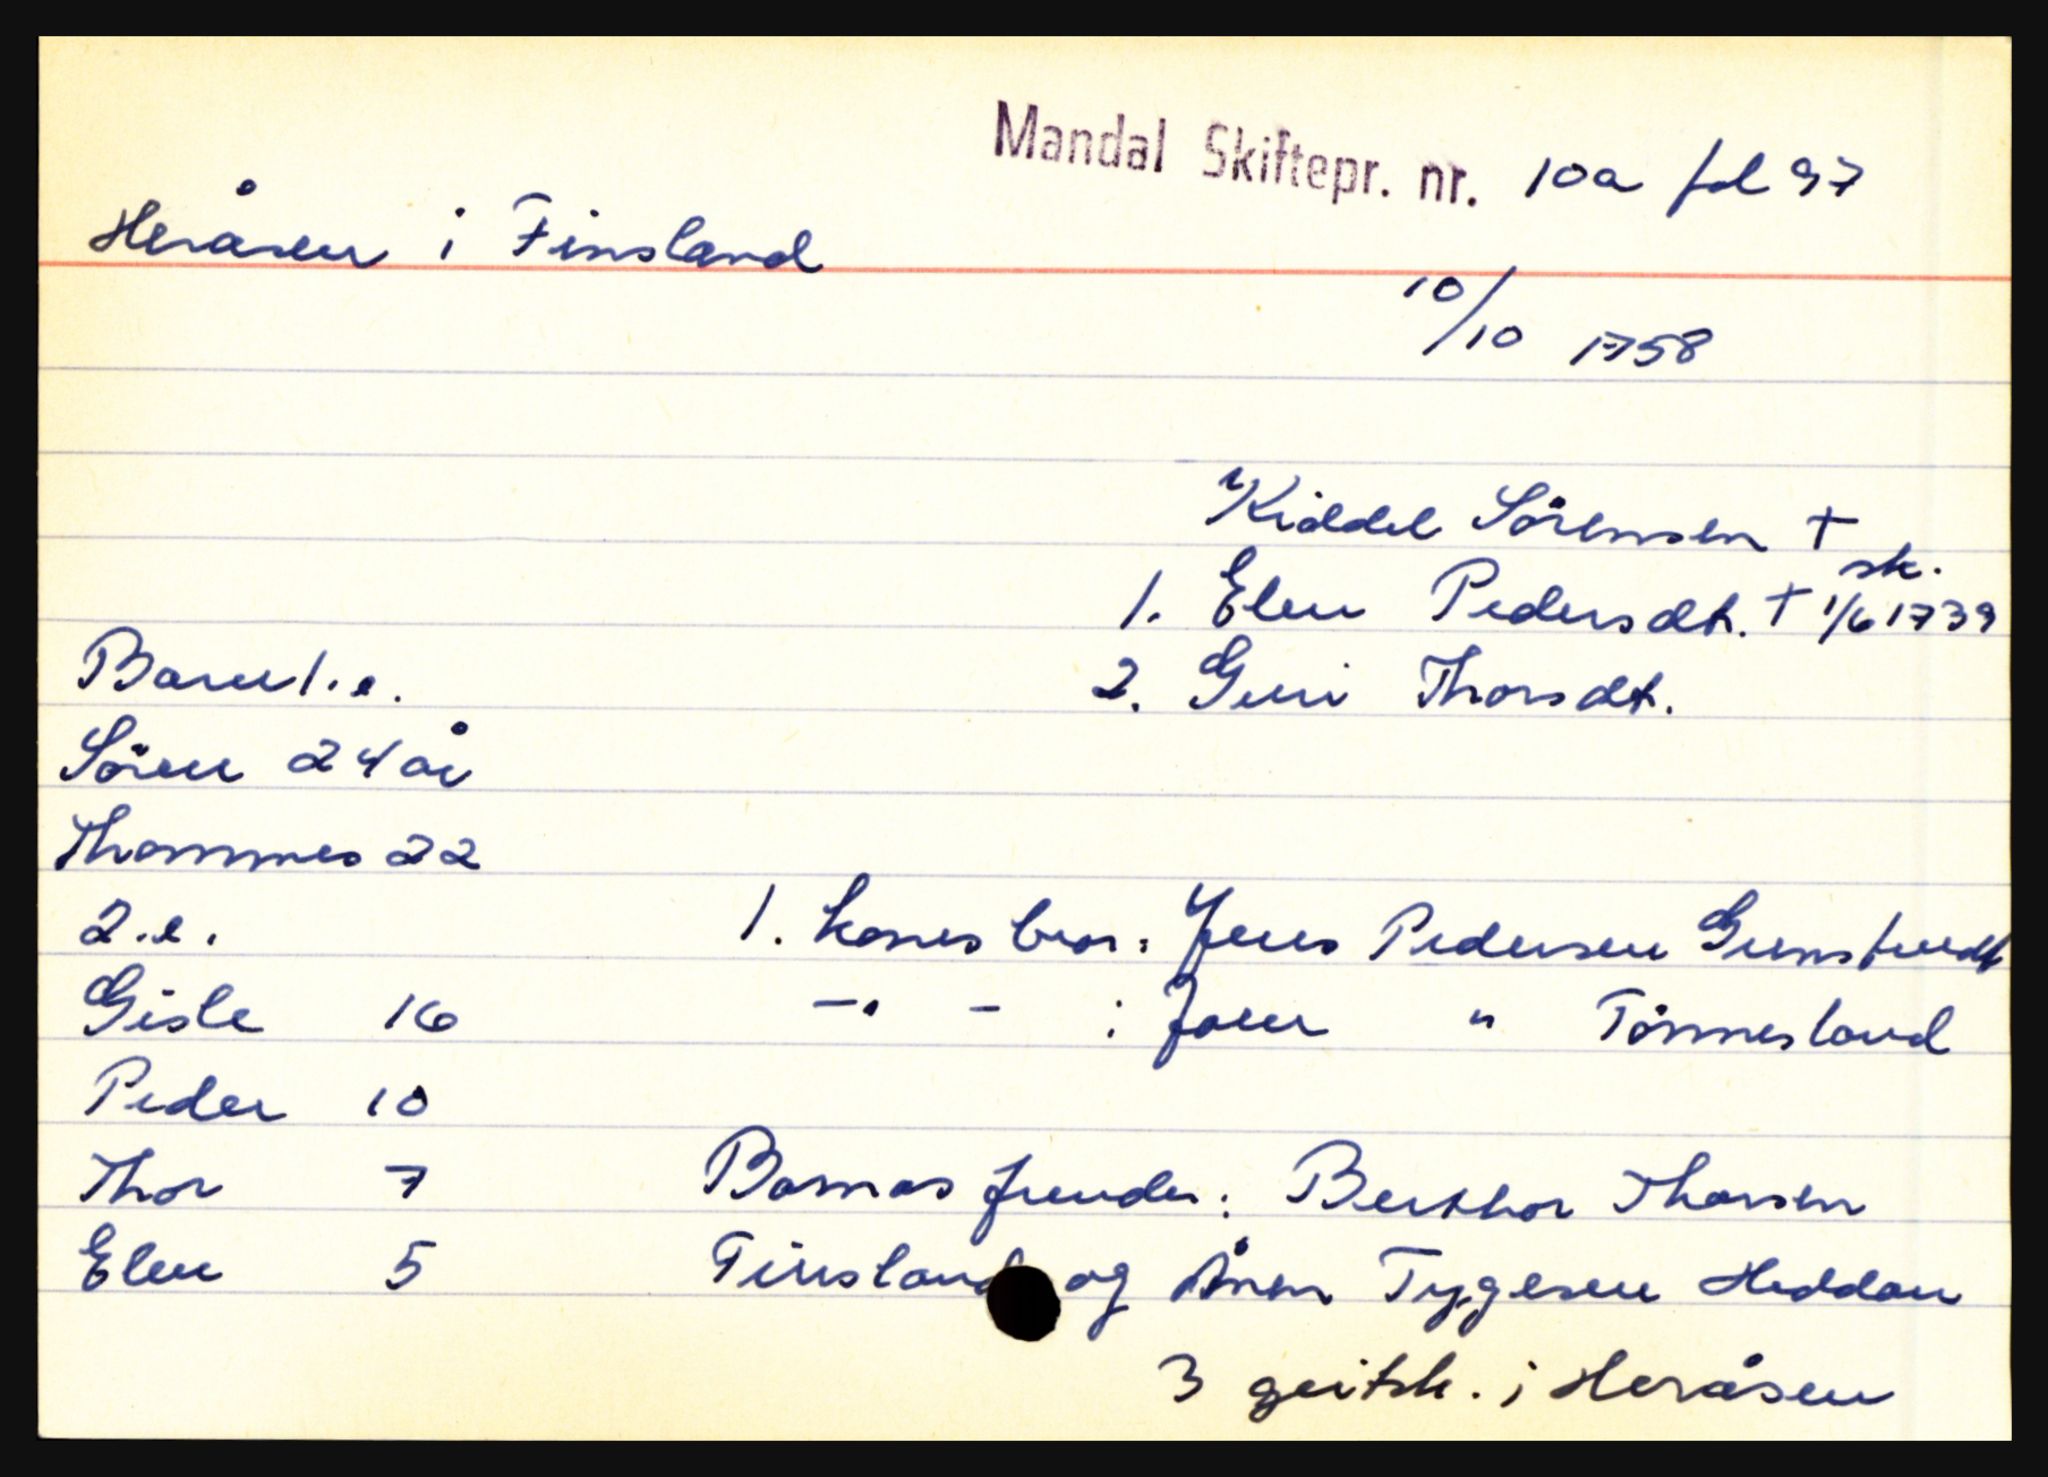 Mandal Skiftepr. nr. 10a fol 97
Heråsen i Finsland
10/10 1758
Kiddel Sörensen +
sk.
1. Elen Pedersdt. + 1/6 1739
Barn 1.e. 2. Guri Thorsdt.
Sören 24 år
Thommes 22
2.e. 1. Kones bror: Jens Pedersen
Gisle 16 -"- : Joen " Tönnesland
Peder 10
Thor 7 Barnas frender: Berthor Thorsen
Elen 5 Finsland og Ånen Tygesen Heddan
3 geitsk. i Heråsen